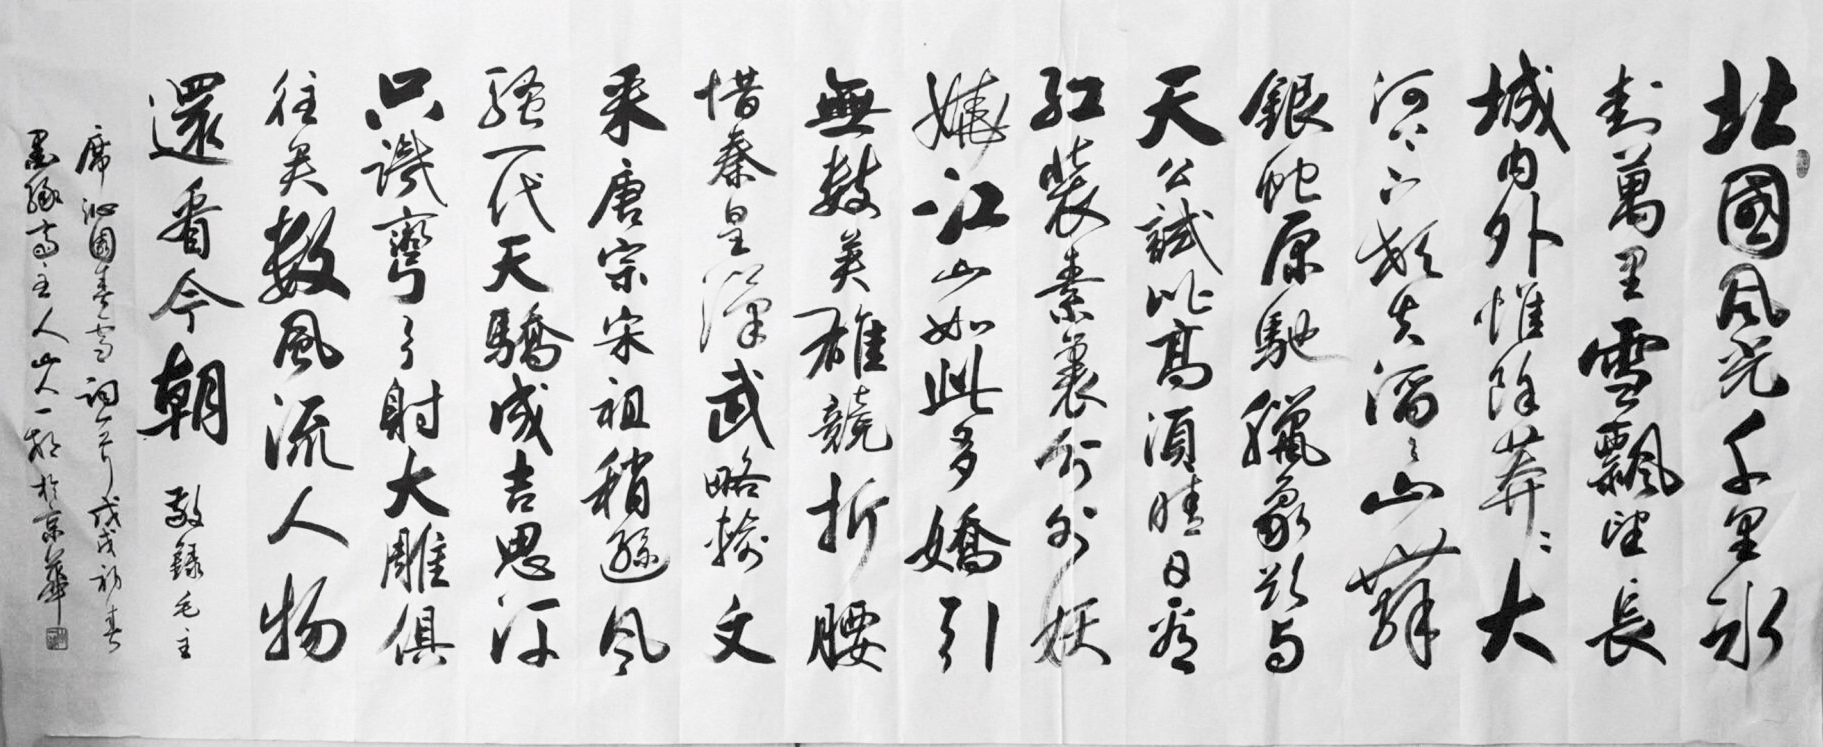 北國風光千里冰
封萬里雪飄望長
城内外惟除莽〻大
河上下頓失滔〻山舞
銀蛇原馳臘象欲与
天公試比高須晴日看
紅裝素裹分外妖
嬈江山如此多嬌引
無數英雄競折腰
惜秦皇漢武略輸文
采唐宗宋祖稍遜風
騷一代天驕成吉思汗
只識彎弓射大雕俱
往矣數風流人物
還看今朝 敬錄毛主
席沁園春雪詞一首戊戌初春
墨緣斋主人山人一於京華